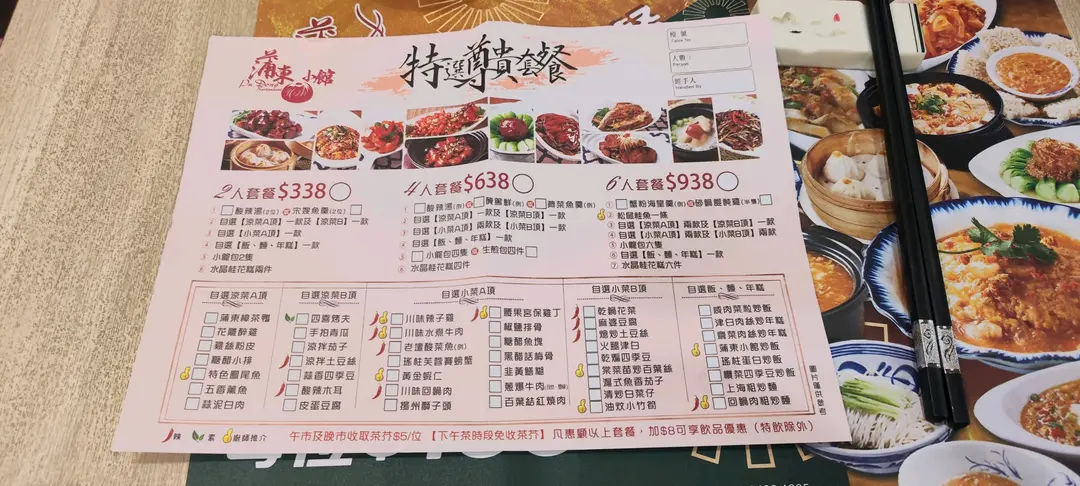 蒲東小館
特選尊貴套餐
檯號
Table No
人數：
Person
經手人
Handled By
2人套餐$338
1 酸辣湯(2位) 或 宋嫂魚羹(2位)
2 自選【涼菜A項】一款及【涼菜B項】一款
3 自選【小菜A項】一款
4 自選【飯、麵、年糕】一款
5 小籠包2隻
6 水晶桂花糕兩件
4人套餐$638
1 酸辣湯(例) 或 黃醬鮮(例) 或 薺菜魚羹(例)
2 自選【涼菜A項】一款及【涼菜B項】一款
3 自選【小菜A項】一款及【小菜B項】一款
4 自選【飯、麵、年糕】一款
5 小籠包四隻 或 生煎包四件
6 水晶桂花糕四件
6人套餐$938
1 蟹粉海皇羹(例) 或 砂鍋醃燉雞(半隻)
2 松鼠桂魚一條
3 自選【涼菜A項】兩款及【涼菜B項】兩款
4 自選【小菜A項】兩款及【小菜B項】兩款
5 小籠包六隻
6 自選【飯、麵、年糕】一款
7 水晶桂花糕六件
自選涼菜A項
蒲東樟茶鴨
花雕醉雞
雞絲粉皮
糖醋小排
特色鳳尾魚
五香燻魚
蒜泥白肉
自選涼菜B項
四喜烤夫
手拍青瓜
涼拌茄子
涼拌土豆絲
蒜香四季豆
酸辣木耳
皮蛋豆腐
自選小菜A項
川味辣子雞
川味水煮牛肉
老壇酸菜魚(例)
瑤柱芙蓉賽螃蟹
黃金蝦仁
川味回鍋肉
揚州獅子頭
腰果宮保雞丁
椒鹽排骨
糖醋魚塊
黑醋話梅骨
韭黃鱔糊
蔥爆牛肉
百葉結紅燒肉
自選小菜B項
乾鍋花菜
麻婆豆腐
熗炒土豆絲
火腿津白
乾煸四季豆
棠菜苗炒百葉絲
滬式魚香茄子
清炒白菜仔
油炆小竹筍
自選飯、麵、年糕
咸肉菜粒炒飯
津白肉絲炒年糕
齏菜肉絲炒年糕
蒲東小館炒飯
瑤柱蛋白炒飯
欖菜四季豆炒飯
上海粗炒麵
回鍋肉粗炒麵
圖片僅供參考
辣 素 廚師推介
午市及晚市收取茶芥$5/位 【下午茶時段免收茶芥】 凡惠顧以上套餐，加$8可享飲品優惠（特飲除外）